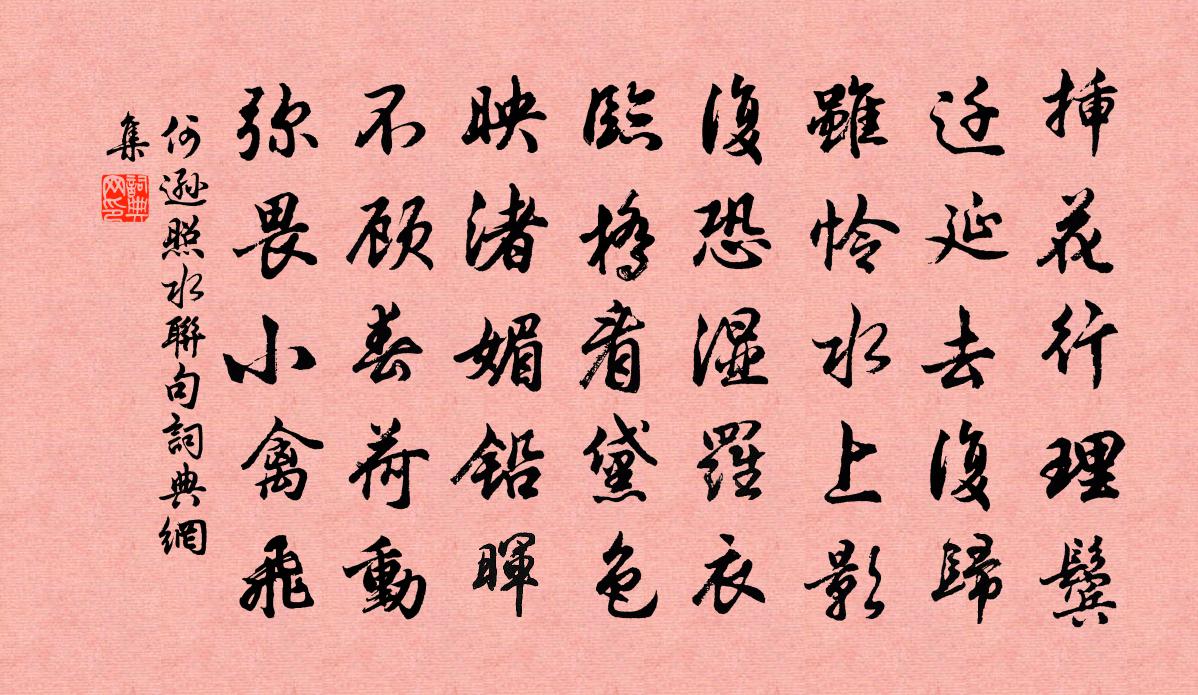 挿花行理鬢
迁延去復歸
雖怜水上影
復恐湿羅衣
臨橋看黛色
映渚媚鉛暉
不顾春荷動
弥畏小禽飛
何遜照水聯句詞典網
集
詞典
网印